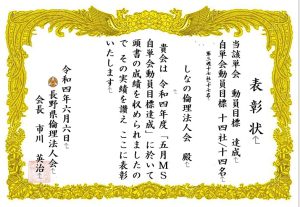 表彰状
当該単会 動員目標 達成
自単会動員目標 十四社(十四名)
しなの倫理法人会 殿
貴会は 令和四年度「五月MS
自単会動員目標達成」に於いて
頭書の成績を収められましたの
で その実績を讃え ここに表彰
いたします
令和四年六月六日
長野県倫理法人会
会長 市川 英治